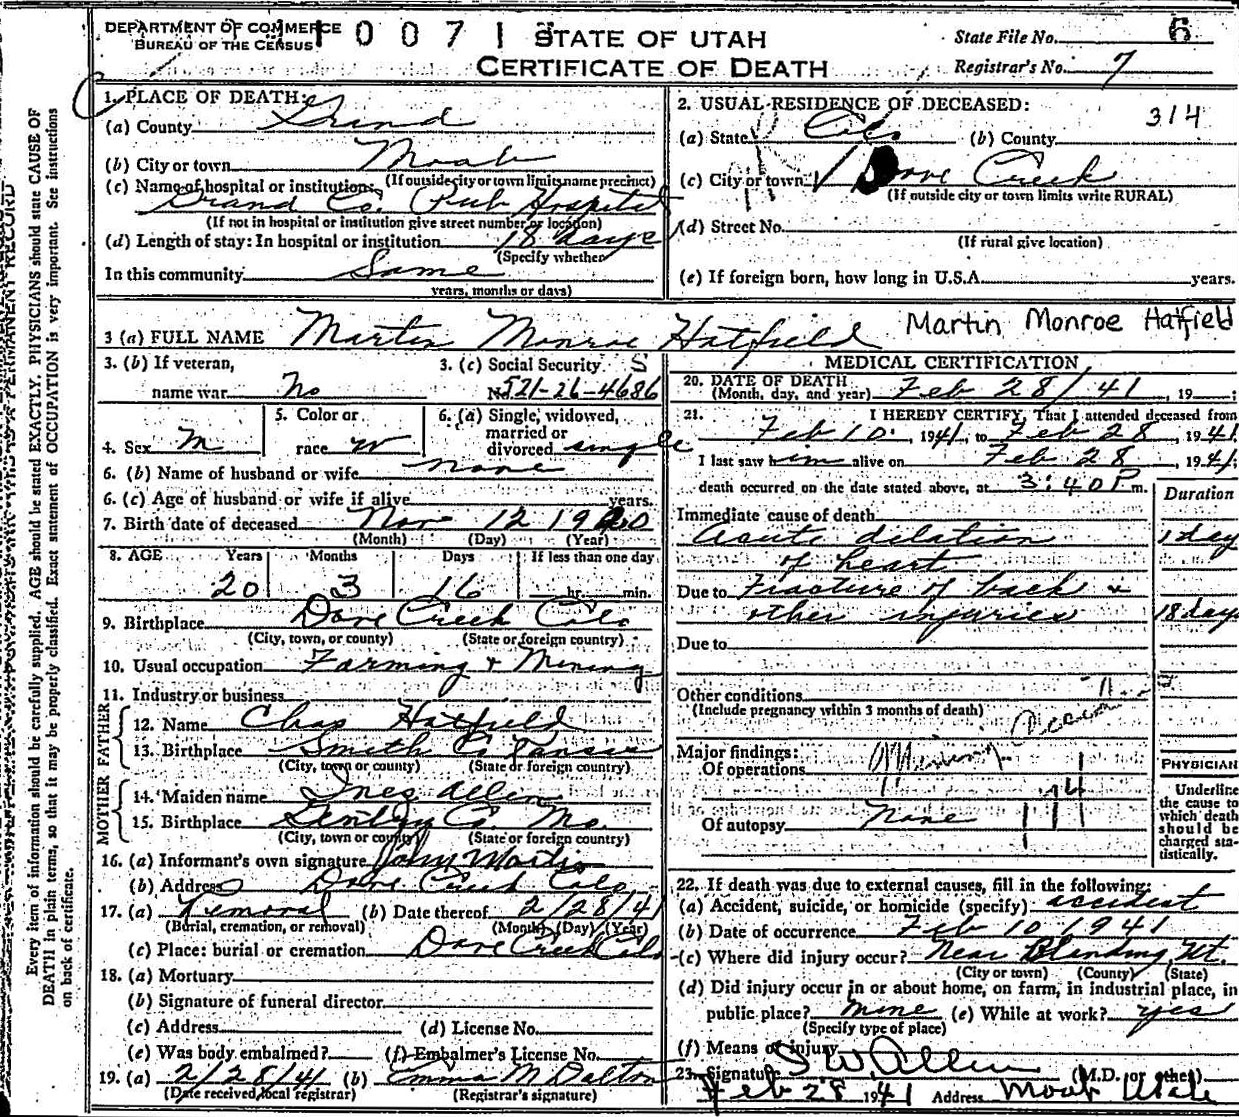 DEPARTMENT OF COMMERCE
BUREAU OF THE CENSUS
1 0 0 7 1
STATE OF UTAH
CERTIFICATE OF DEATH
State File No. 6
Registrar's No. 7
Every item of information should be carefully supplied. AGE should be stated EXACTLY. PHYSICIANS should state CAUSE OF
DEATH in plain terms, so that it may be properly classified. Exact statement of OCCUPATION is very important. See instructions
on back of certificate.
PERMANENT RECORD
1. PLACE OF DEATH:
(a) County Grand
(b) City or town Moab
(If outside city or town limits name precinct)
(c) Name of hospital or institution:
Grand Co. Pub Hospital
(If not in hospital or institution give street number or location)
(d) Length of stay: In hospital or institution 18 days
(Specify whether
In this community Same
years, months or days)
2. USUAL RESIDENCE OF DECEASED:
314
(a) State Colo (b) County
(c) City or town Dove Creek
(If outside city or town limits write RURAL)
(d) Street No.
(If rural give location)
(e) If foreign born, how long in U.S.A. years.
3 (a) FULL NAME Martin Monroe Hatfield Martin Monroe Hatfield
3. (b) If veteran,
name war No
3. (c) Social Security S
No. 521-26-4686
4. Sex M
5. Color or
race W
6. (a) Single, widowed,
married or
divorced single
6. (b) Name of husband or wife none
6. (c) Age of husband or wife if alive years.
7. Birth date of deceased Nov 12 1920
(Month) (Day) (Year)
8. AGE Years Months Days If less than one day
20 3 16 hr. min.
9. Birthplace Dove Creek Colo
(City, town, or county) (State or foreign country)
10. Usual occupation Farming & Mining
11. Industry or business
FATHER
12. Name Chas Hatfield
13. Birthplace Smith Co. Kansas
(City, town or county) (State or foreign country)
MOTHER
14. Maiden name Ines Allen
15. Birthplace Co. Mo.
(City, town or county) (State or foreign country)
16. (a) Informant's own signature John
(b) Address Dove Creek Colo
17. (a) Removal (b) Date thereof 2/28/41
(Burial, cremation, or removal) (Month) (Day) (Year)
(c) Place: burial or cremation Dove Creek Colo
18. (a) Mortuary
(b) Signature of funeral director
(c) Address (d) License No.
(e) Was body embalmed? (f) Embalmer's License No.
19. (a) 2/28/41 (b) Emma M Dalton
(Date received local registrar) (Registrar's signature)
MEDICAL CERTIFICATION
20. DATE OF DEATH
(Month, day, and year) Feb 28/41, 19 ;
21. I HEREBY CERTIFY, That I attended deceased from
Feb 10, 1941, to Feb 28, 1941.
I last saw him alive on Feb 28, 1941;
death occurred on the date stated above, at 3:40 P m.
Duration
Immediate cause of death
Acute dilation 1 day
of heart
Due to Fracture of back &
other injuries 18 days
Due to
Other conditions
(Include pregnancy within 3 months of death)
Major findings:
Of operations Mining
174
Of autopsy None
PHYSICIAN
Underline
the cause to
which death
should be
charged sta-
tistically.
22. If death was due to external causes, fill in the following:
(a) Accident, suicide, or homicide (specify) accident
(b) Date of occurrence Feb 10 1941
(c) Where did injury occur? Near Blanding, Ut.
(City or town) (County) (State)
(d) Did injury occur in or about home, on farm, in industrial place, in
public place? mine (e) While at work? yes
(Specify type of place)
(f) Means of injury
23. Signature S W. Allen (M.D. or other)
Feb 28 1941 Address Moab Utah